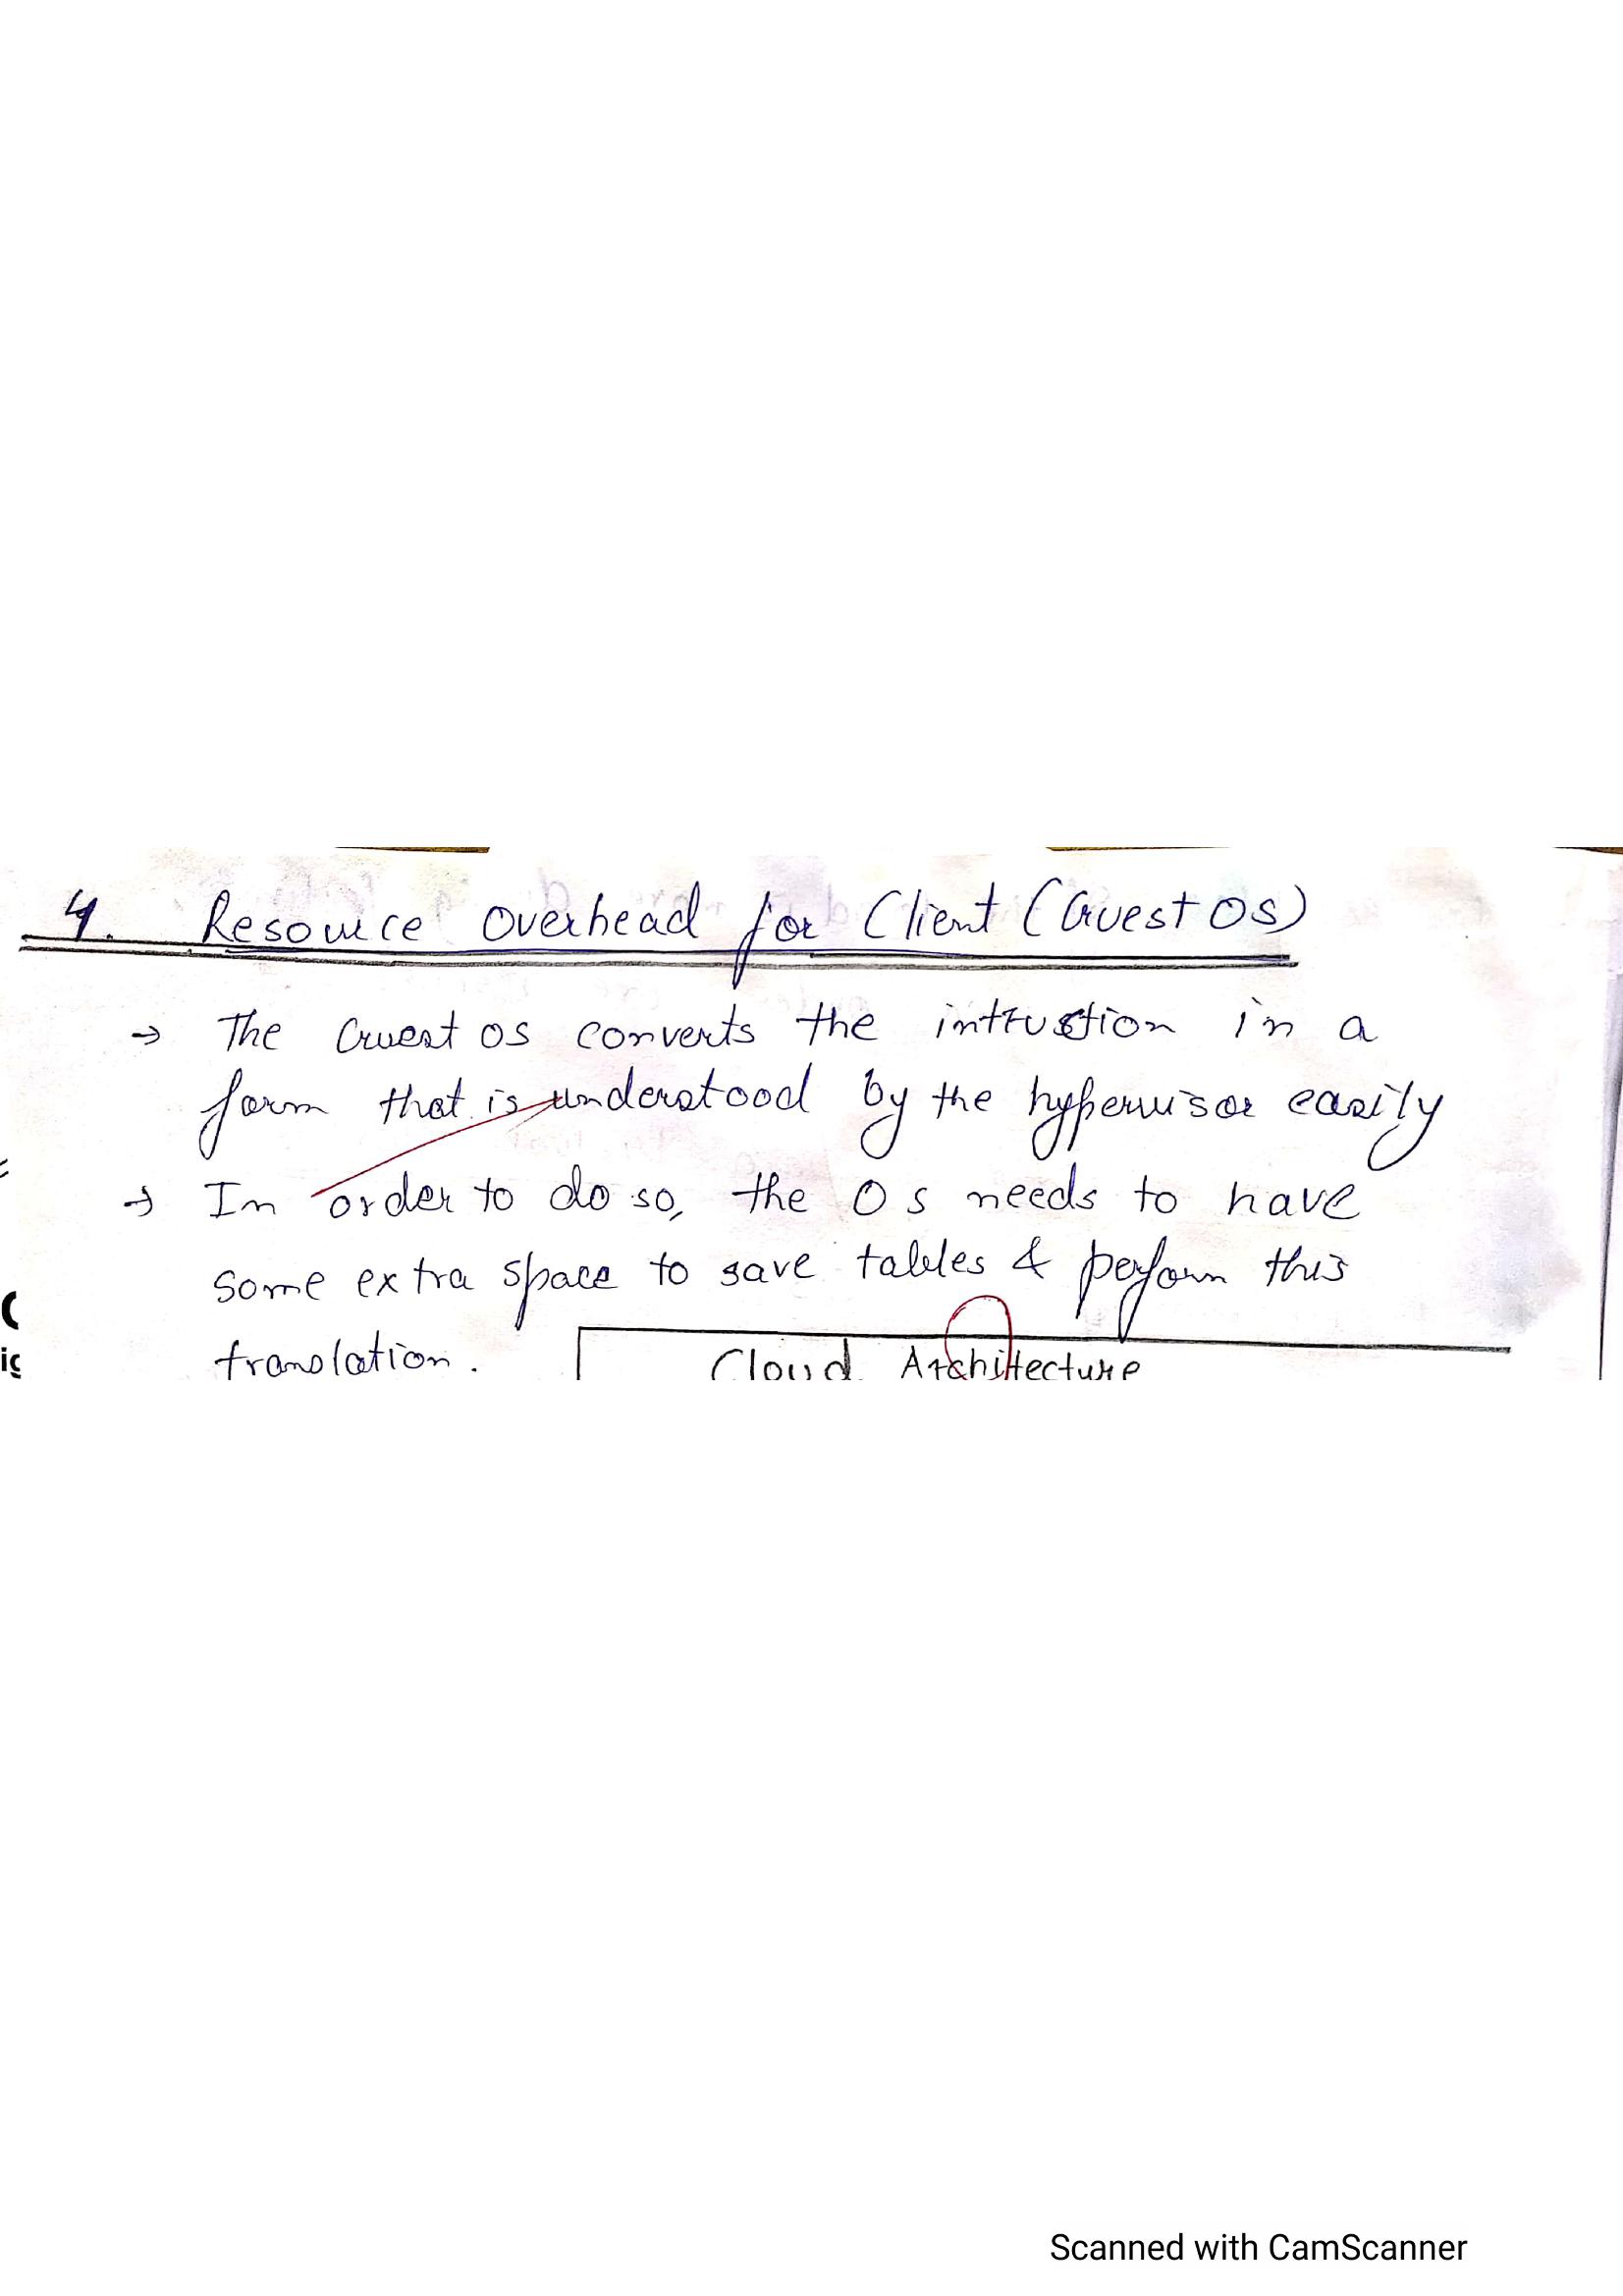 4. Resource Overhead for Client (Guest OS)
→ The Guest OS converts the intrustion in a
form that is understood by the hypervisor easily
→ In order to do so, the OS needs to have
some extra space to save tables & perform this
translation.
Cloud Architecture
Scanned with CamScanner